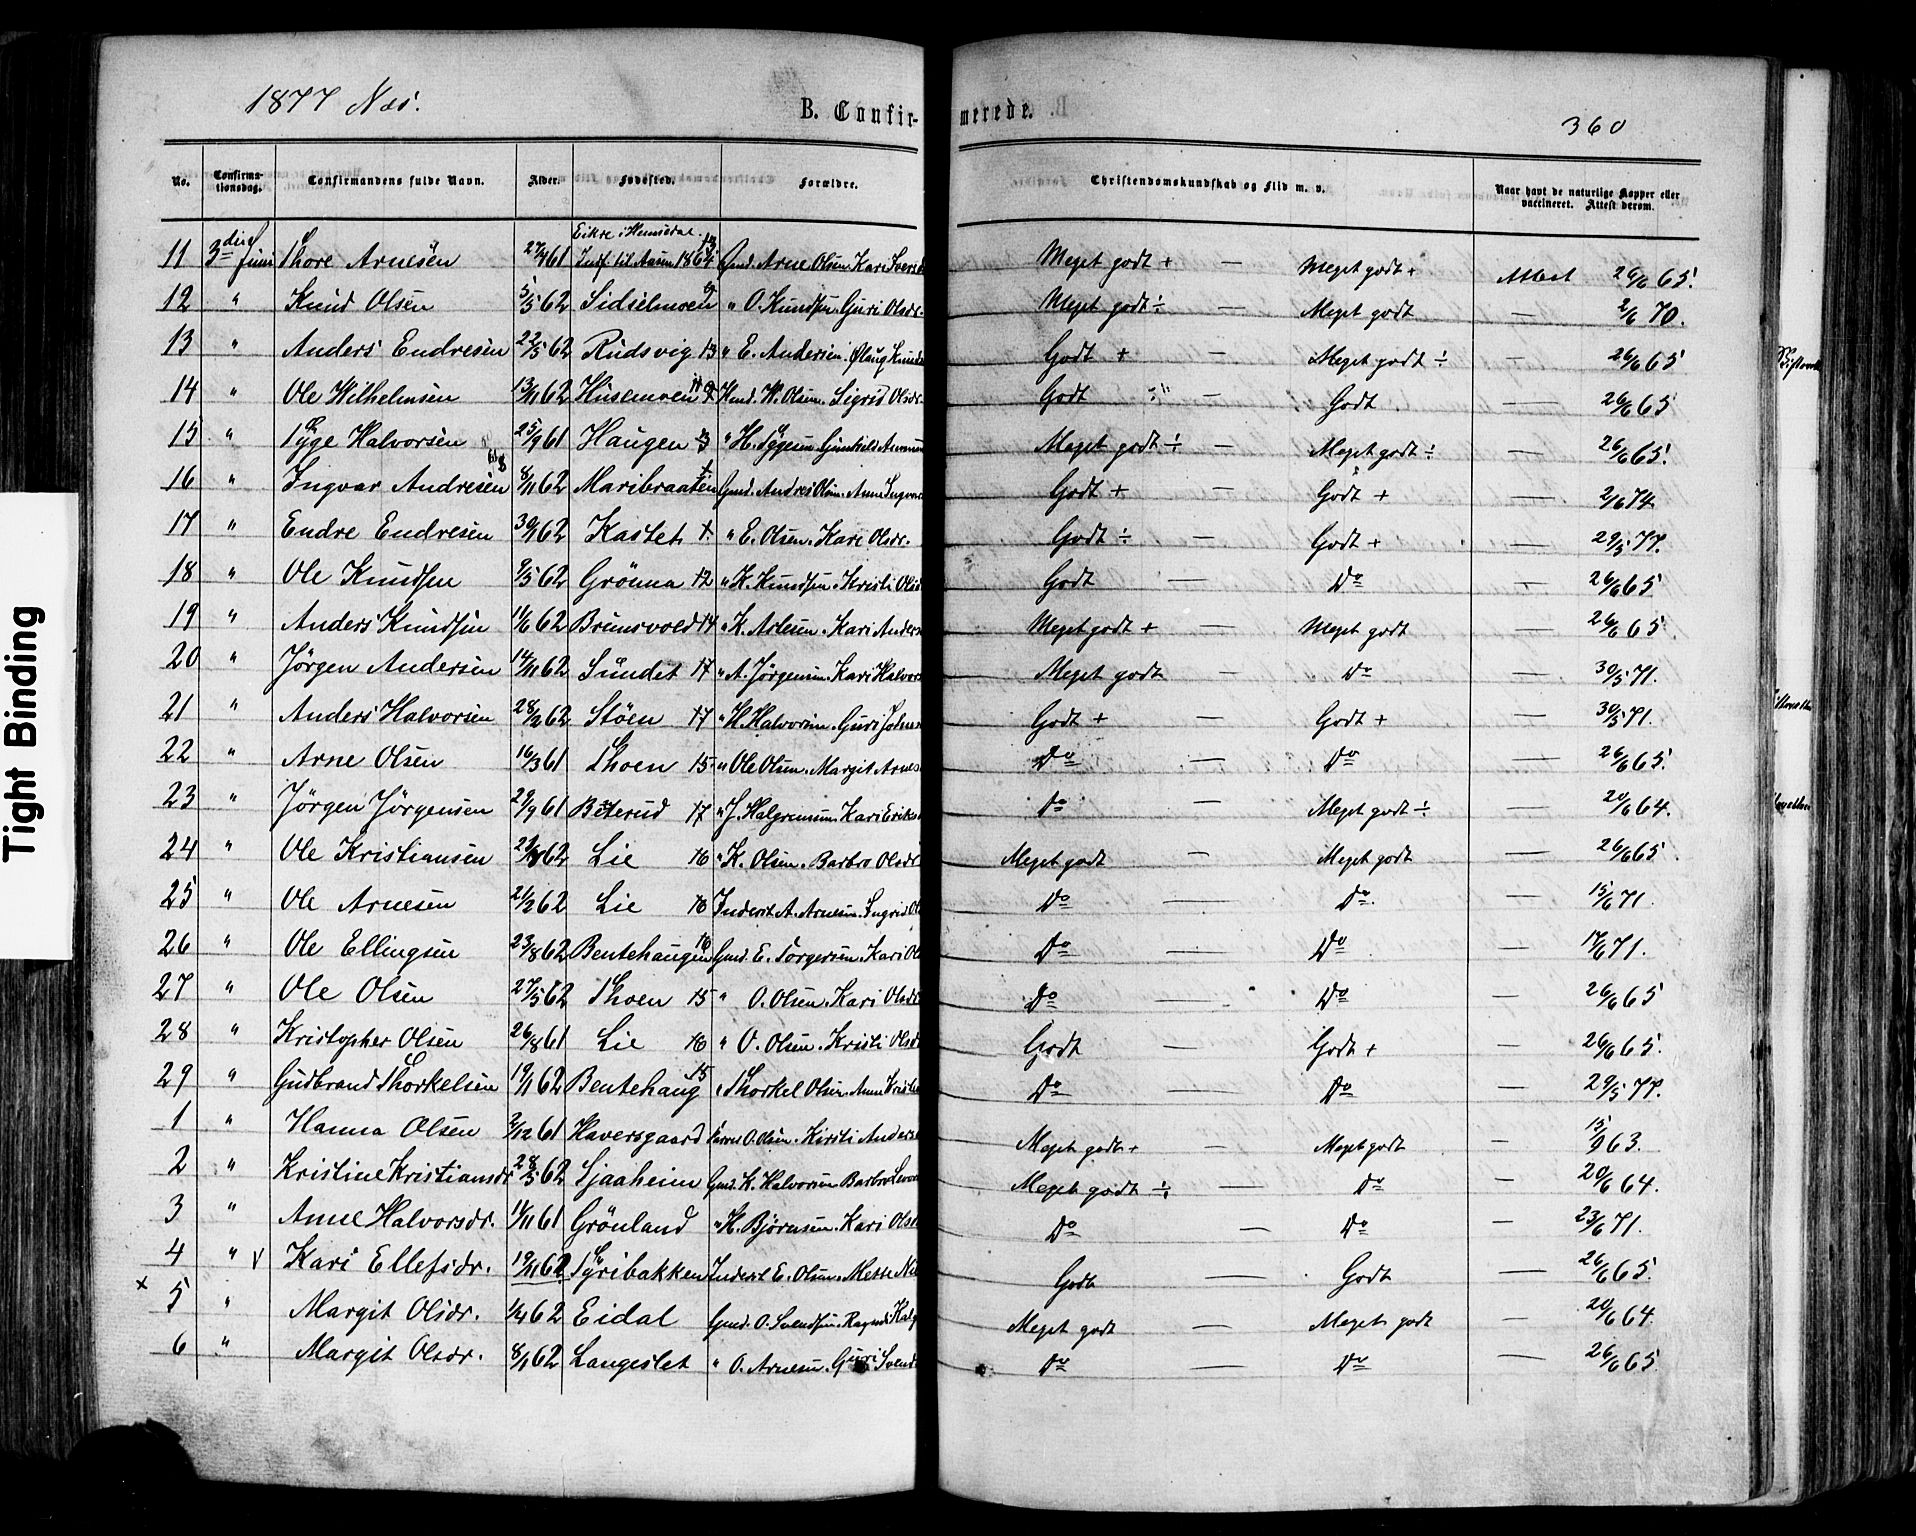 1877 Næs.
B. Confir-
merede.
360
No.
Confirma-
tionsdag.
Confirmandens fulde Navn.
Alder.
Fødested.
Forældre.
Christendomskundskab og Flid m. v.
Naar havt de naturlige Kopper eller
vaccineret. Attest derom.
Eikre i Hemsedal.
11 3die Juni Thore Arnesen 27/4 61 Indf. til Aaln 1864 Gmd. Arne Olsen Kari Meget godt + — Meget godt + Attest 26/6 65.
12 " Knud Olsen 5/5 62 Sidselmoen " O. Knudsen. Guri Olsdr. Meget godt ÷ — Meget godt — 2/6 70.
13 " Anders Endresen 22/5 62 Rudsvig 13 " E. Andersen. Øiaug Godt + — Meget godt ÷ — 26/6 65
14 " Ole Wilhelmsen 13/11 62 Husemoen Hmd. W. Olsen. Sigrid Olsdr. Godt — Godt. — 26/6 65
15 " Tyge Halvorsen 25/9 61 Haugen " H. Tygesen Gunhild Meget godt ÷ — Meget godt ÷ — 26/6 65.
16 " Ingvar Andresen 8/11 62 Maribraaten Gmd. Andres Olsen. Anne Ingvars Godt + — Godt + — 2/6 74.
17 " Endre Endresen 30/1 62 Kastet " E. Olsen. Kari Olsdr. Godt ÷ — Godt + — 29/5 77.
18 " Ole Knudsen 9/5 62 Grönna 12 " K. Knudsen. Kristi Olsd Godt — Do — 26/6 65
19 " Anders Knudsen 11/6 62 Brunsvold 14 " K. Arlesen. Kari Anders Meget godt + — Meget godt — 26/6 65.
20 " Jörgen Andersen 14/11 62 Sundet 17 " A. Jörgensen. Kari Halvors Meget godt — Do — 30/5 71.
21 " Anders Halvorsen 28/2 62 Stöen 17 " H. Halvorsen. Guri Godt + — Godt + — 30/5 71.
22 " Arne Olsen 16/3 61 Thoen 15 " Ole Olsen. Margit Arnes Do — Do — 26/6 65.
23 " Jörgen Jörgensen 29/9 61 Beterud 17 " J. Halgrimsen. Kari Eriks Do — Meget godt ÷ — 20/6 64.
24 " Ole Kristiansen 62 Lie 16 " K. Olsen. Barbro Olsdr Meget godt — Meget godt — 26/6 65
25 " Ole Arnesen 21/2 62 Lie 16 Inderst A. Arnesen. Ingrid Ol Do — Do. — 15/6 71.
26 " Ole Ellingsen 23/8 62 Bentehaugen 16 Gmd. E. Torgersen. Kari Ol Do — Do — 17/6 71.
27 " Ole Olsen 27/5 62 Thoen 15 " O. Olsen. Kari Olsdr Do — Do — 26/6 65
28 " Kristopher Olsen 26/8 61 Lie 16 " O. Olsen. Kristi Olsd Godt — Godt + — 26/6 65.
29 " Gudbrand Thorkelsen 19/11 62 Bentehaug 15 " Thorkel Olsen. Anne Do — Do — 29/5 77.
1 " Hanna Olsen 2/12 61 Haversgaard O. Olsen. Kirsti Anders Meget godt + — Meget godt 15/9 63.
2 " Kristine Kristiansdr 28/5 62 Sjaaheim Gmd. K. Halvorsen Barbro Meget godt ÷ — Do — 20/6 64.
3 " Anne Halvorsdr. 11/11 61 Grönland " H. Björnsen. Kari Ols Do — Do — 23/6 71.
4 " V Kari Ellefsdr. 19/11 62 Tyribakken Inderst E. Olsen. Mette Godt — Godt — 26/6 65.
× 5 " Margit Olsdr. 1/4 62 Eidal Gmd. O. Svendsen. Meget godt — Meget godt — 20/6 64.
6 " Margit Olsdr. 8/1 62 Langeslet " O. Arnesen. Guri Svends Do — Do — 26/6 65.
Tight Binding